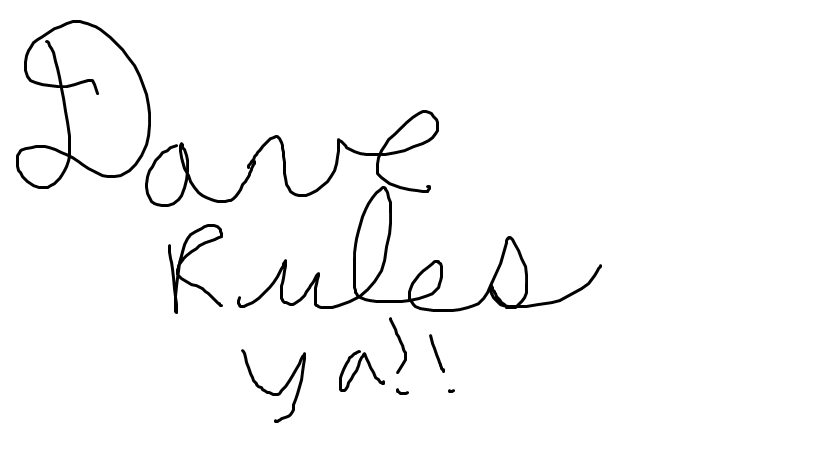 Dave
Rules
ya!!